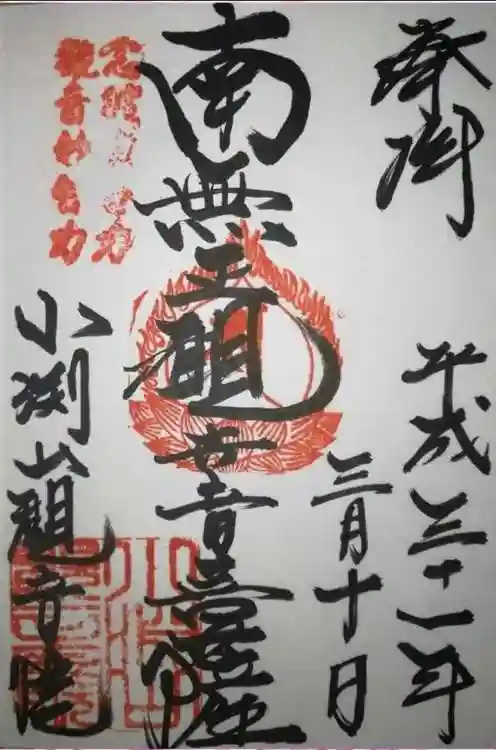 奉拝
平成三十一年
三月十日
南無正観世音菩薩
念彼観音力
観音妙智力
小渕山観音院